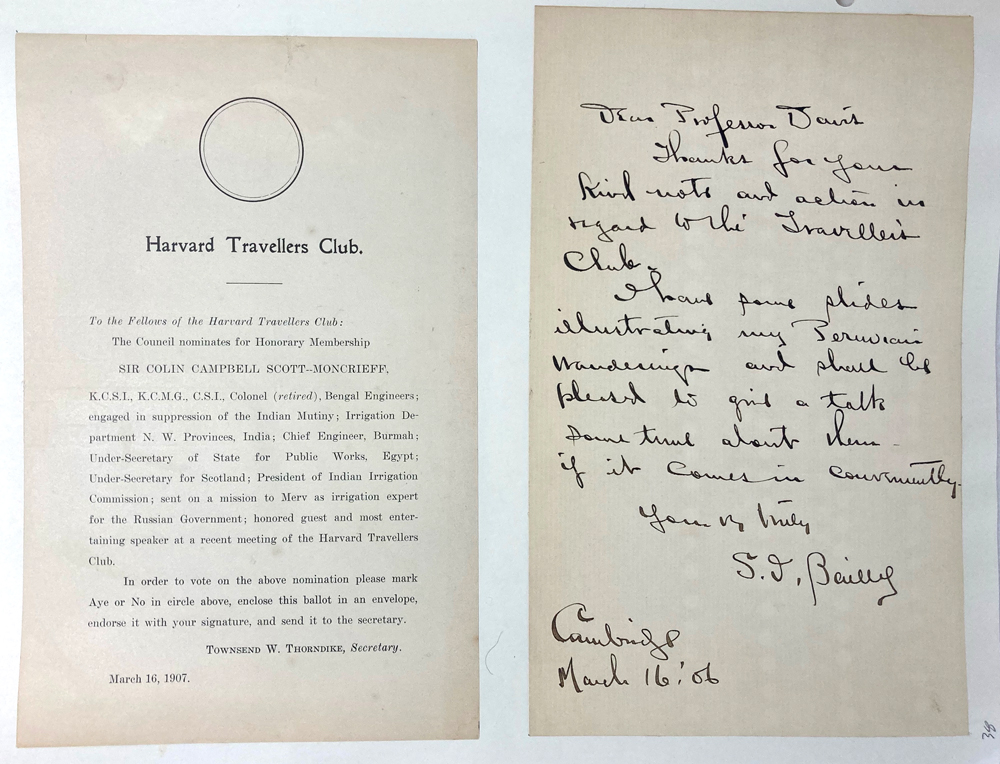 Harvard Travellers Club.
To the Fellows of the Harvard Travellers Club:
The Council nominates for Honorary Membership
SIR COLIN CAMPBELL SCOTT--MONCRIEFF,
K.C.S.I., K.C.M.G., C.S.I., Colonel (retired), Bengal Engineers;
engaged in suppression of the Indian Mutiny; Irrigation De-
partment N. W. Provinces, India; Chief Engineer, Burmah;
Under-Secretary of State for Public Works, Egypt;
Under-Secretary for Scotland; President of Indian Irrigation
Commission; sent on a mission to Merv as irrigation expert
for the Russian Government; honored guest and most enter-
taining speaker at a recent meeting of the Harvard Travellers
Club.
In order to vote on the above nomination please mark
Aye or No in circle above, enclose this ballot in an envelope,
endorse it with your signature, and send it to the secretary.
TOWNSEND W. THORNDIKE, Secretary.
March 16, 1907.
Dear Professor Davis
Thanks for your
kind note and action in
regard to the Traveller's
Club.
I have some slides
illustrating my Peruvian
wanderings and shall be
pleased to give a talk
some time about them -
if it comes in conveniently.
Yours very truly
S. I. Bailey
Cambridge
March 16.'06
38